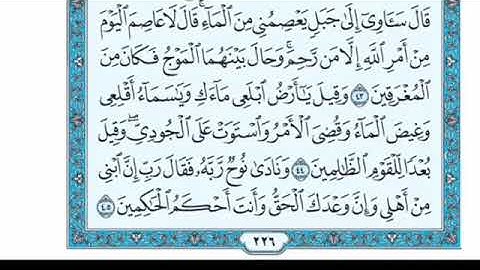 قَالَ سَـَٔاوِىٓ إِلَىٰ جَبَلٍ يَعْصِمُنِى مِنَ ٱلْمَآءِ ۚ قَالَ لَا عَاصِمَ ٱلْيَوْمَ
مِنْ أَمْرِ ٱللَّهِ إِلَّا مَن رَّحِمَ ۚ وَحَالَ بَيْنَهُمَا ٱلْمَوْجُ فَكَانَ مِنَ
ٱلْمُغْرَقِينَ ٤٣ وَقِيلَ يَـٰٓأَرْضُ ٱبْلَعِى مَآءَكِ وَيَـٰسَمَآءُ أَقْلِعِى
وَغِيضَ ٱلْمَآءُ وَقُضِىَ ٱلْأَمْرُ وَٱسْتَوَتْ عَلَى ٱلْجُودِىِّ ۖ وَقِيلَ
بُعْدًا لِّلْقَوْمِ ٱلظَّـٰلِمِينَ ٤٤ وَنَادَىٰ نُوحٌ رَّبَّهُۥ فَقَالَ رَبِّ إِنَّ ٱبْنِى
مِنْ أَهْلِى وَإِنَّ وَعْدَكَ ٱلْحَقُّ وَأَنتَ أَحْكَمُ ٱلْحَـٰكِمِينَ ٤٥
٢٢٦